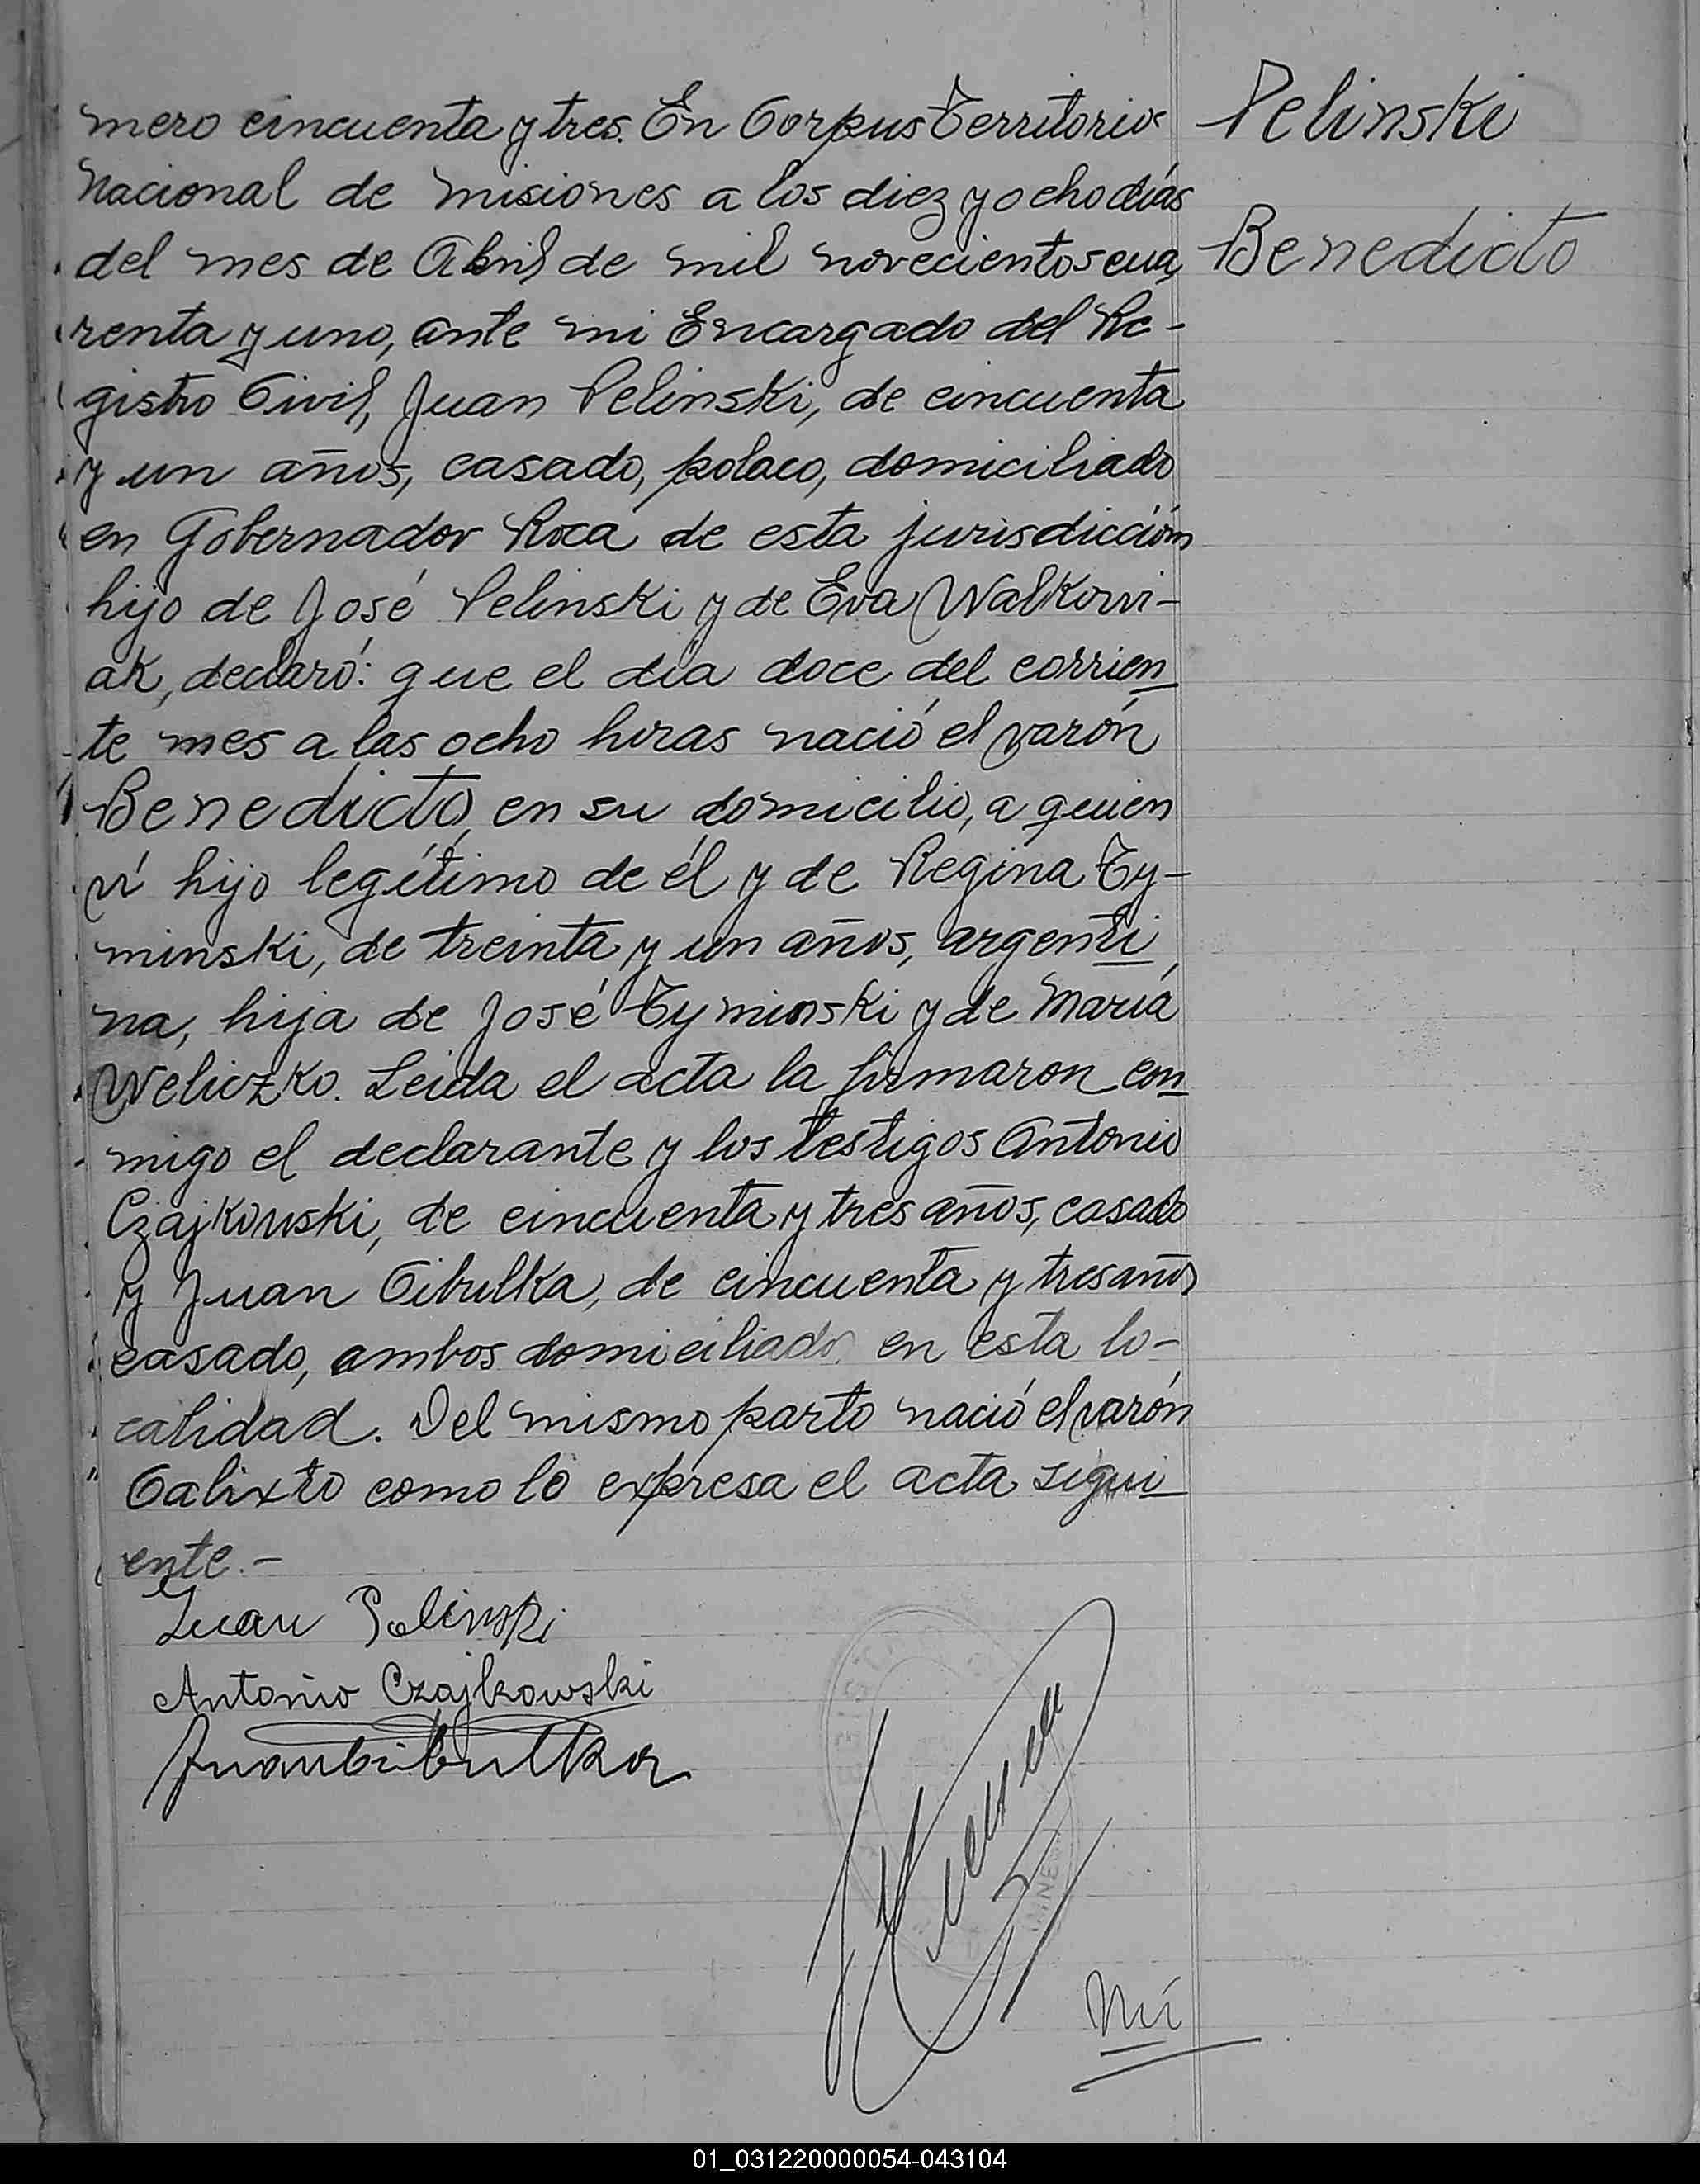 mero cincuenta y tres. En Corpus Territorio
Nacional de Misiones a los diez y ocho días
del mes de Abril de mil novecientos cua
renta y uno, ante mi Encargado del Re-
gistro Civil, Juan Pelinski, de cincuenta
y un años, casado, polaco, domiciliado
en Gobernador Roca de esta jurisdicción
hijo de José Pelinski y de Eva Walkowi-
ak, declaró: que el día doce del corrien
te mes a las ocho horas nació el varón
Benedicto, en su domicilio, a quien
ví hijo legítimo de él y de Regina Ty-
minski, de treinta y un años, argenti
na, hija de José Tyminski y de María
Weliczko. Leida el acta la firmaron con
migo el declarante y los testigos Antonio
Czajkowski, de cincuenta y tres años, casado
y Juan Cibulka, de cincuenta y tres años
casado, ambos domiciliado en esta lo-
calidad. Del mismo parto nació el varón
Calixto como lo expresa el acta sigui
ente.-
Juan Pelinski
Antonio Czajkowski
Juan Cibulka
Nú
Pelinski
Benedicto
01_031220000054-043104